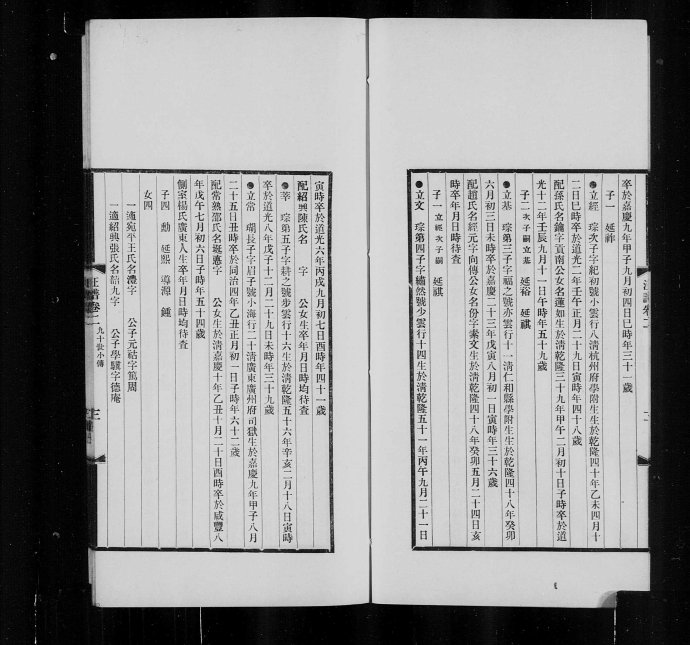 卒於嘉慶九年甲子九月初四日巳時年三十一歲
子一　延祚
立經　琮次子字紀初號小雲行八清杭州府學附生生於乾隆四十年乙未四月十
二日巳時卒於道光二年壬午正月二十九日寅時年四十八歲
配孫氏名鑰字貢南公女名蓮如生於清乾隆三十九年甲午二月初十日子時卒於道
光十二年壬辰九月十一日午時年五十九歲
子二　次子嗣立基　延裕　延祺
立基　琮第三子字福之號亦雲行十一清仁和縣學附生生於乾隆四十八年癸卯
六月初三日未時卒於嘉慶二十三年戊寅八月初一日寅時年三十六歲
配趙氏名經元字向傳公女名份字素文生於清乾隆四十八年癸卯五月二十四日亥
時卒年月日時待查
子一　立經次子嗣　延祺
立文　琮第四子字繡然號少雲行十四生於清乾隆五十一年丙午九月二十一日
寅時卒於道光六年丙戌九月初七日酉時年四十一歲
配紹興陳氏名　字　公女生卒年月日時均待查
莘　琮第五子字耕之號步雲行十六生於清乾隆五十六年辛亥二月十八日寅時
卒於道光八年戊子十二月二十九日未時年三十九歲
立常　瑚長子字眉子號小海行二十清廣東廣州府司獄生於嘉慶九年甲子八月
二十五日丑時卒於同治四年乙丑正月初一日子時年六十二歲
配常熟邵氏名珽蕙字　公女生於清嘉慶十年乙丑十月二十日酉時卒於咸豐八
年戊午七月初六日子時年五十四歲
側室楊氏廣東人生卒年月日時均待查
子四　勳　延熙　導源　鍾
女四
一適宛平王氏名灃字　公子元祜字篤周
一適紹興張氏名韶九字　公子學驥字德庵
汪譜卷二　九十世小傳　三